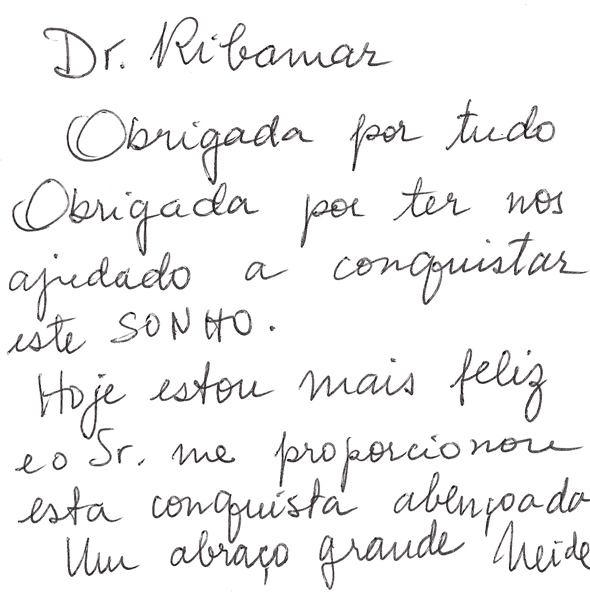 Dr. Ribamar
Obrigada por tudo
Obrigada por ter nos
ajudado a conquistar
este SONHO.
Hoje estou mais feliz
e o Sr. me proporcionou
esta conquista abençoada
Um abraço grande Neide